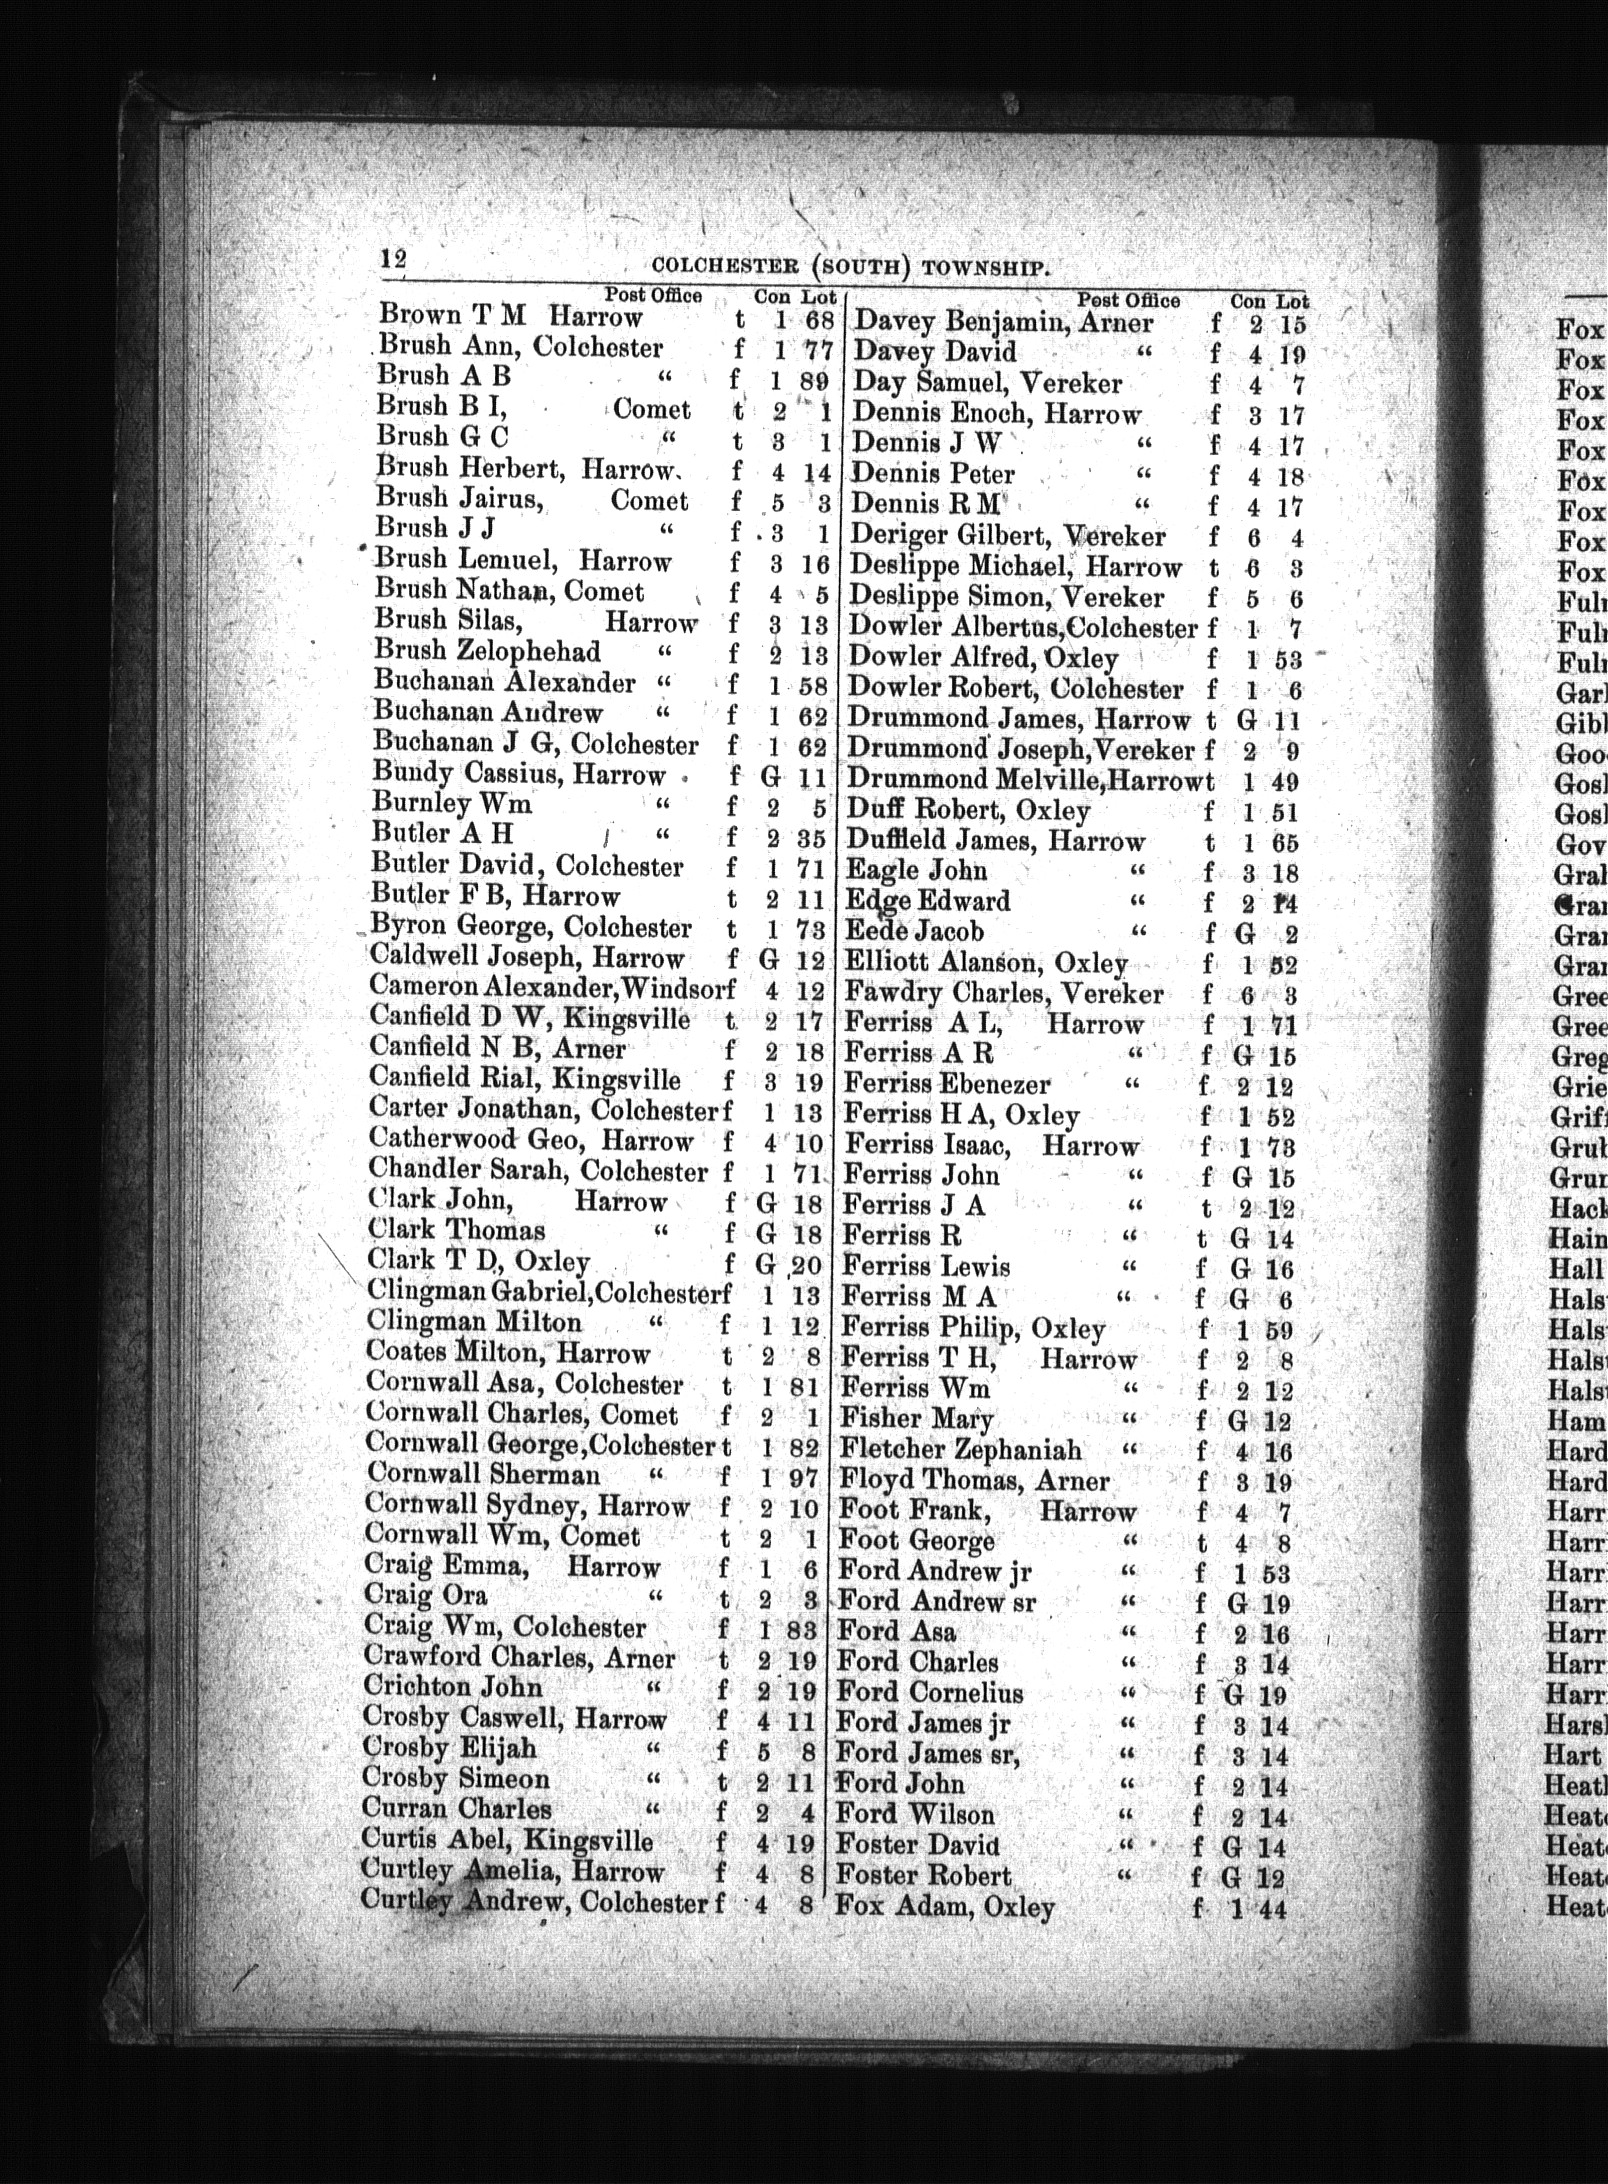 12
COLCHESTER (SOUTH) TOWNSHIP.
Post Office Con Lot
Brown T M Harrow t 1 68
Brush Ann, Colchester f 1 77
Brush A B “ f 1 89
Brush B I, Comet t 2 1
Brush G C “ t 3 1
Brush Herbert, Harrow. f 4 14
Brush Jairus, Comet f 5 3
Brush J J “ f 3 1
Brush Lemuel, Harrow f 3 16
Brush Nathan, Comet f 4 5
Brush Silas, Harrow f 3 13
Brush Zelophehad “ f 2 13
Buchanan Alexander “ f 1 58
Buchanan Andrew “ f 1 62
Buchanan J G, Colchester f 1 62
Bundy Cassius, Harrow f G 11
Burnley Wm “ f 2 5
Butler A H “ f 2 35
Butler David, Colchester f 1 71
Butler F B, Harrow t 2 11
Byron George, Colchester t 1 73
Caldwell Joseph, Harrow f G 12
Cameron Alexander,Windsor f 4 12
Canfield D W, Kingsville t 2 17
Canfield N B, Arner f 2 18
Canfield Rial, Kingsville f 3 19
Carter Jonathan, Colchester f 1 13
Catherwood Geo, Harrow f 4 10
Chandler Sarah, Colchester f 1 71
Clark John, Harrow f G 18
Clark Thomas “ f G 18
Clark T D, Oxley f G 20
Clingman Gabriel,Colchester f 1 13
Clingman Milton “ f 1 12
Coates Milton, Harrow t 2 8
Cornwall Asa, Colchester t 1 81
Cornwall Charles, Comet f 2 1
Cornwall George,Colchester t 1 82
Cornwall Sherman “ f 1 97
Cornwall Sydney, Harrow f 2 10
Cornwall Wm, Comet t 2 1
Craig Emma, Harrow f 1 6
Craig Ora “ t 2 3
Craig Wm, Colchester f 1 83
Crawford Charles, Arner t 2 19
Crichton John “ f 2 19
Crosby Caswell, Harrow f 4 11
Crosby Elijah “ f 5 8
Crosby Simeon “ t 2 11
Curran Charles “ f 2 4
Curtis Abel, Kingsville f 4 19
Curtley Amelia, Harrow f 4 8
Curtley Andrew, Colchester f 4 8
Post Office Con Lot
Davey Benjamin, Arner f 2 15
Davey David “ f 4 19
Day Samuel, Vereker f 4 7
Dennis Enoch, Harrow f 3 17
Dennis J W “ f 4 17
Dennis Peter “ f 4 18
Dennis R M “ f 4 17
Deriger Gilbert, Vereker f 6 4
Deslippe Michael, Harrow t 6 3
Deslippe Simon, Vereker f 5 6
Dowler Albertus,Colchester f 1 7
Dowler Alfred, Oxley f 1 53
Dowler Robert, Colchester f 1 6
Drummond James, Harrow t G 11
Drummond Joseph,Vereker f 2 9
Drummond Melville,Harrow t 1 49
Duff Robert, Oxley f 1 51
Duffield James, Harrow t 1 65
Eagle John “ f 3 18
Edge Edward “ f 2 14
Eede Jacob “ f G 2
Elliott Alanson, Oxley f 1 52
Fawdry Charles, Vereker f 6 3
Ferriss A L, Harrow f 1 71
Ferriss A R “ f G 15
Ferriss Ebenezer “ f 2 12
Ferriss H A, Oxley f 1 52
Ferriss Isaac, Harrow f 1 73
Ferriss John “ f G 15
Ferriss J A “ t 2 12
Ferriss R “ t G 14
Ferriss Lewis “ f G 16
Ferriss M A “ f G 6
Ferriss Philip, Oxley f 1 59
Ferriss T H, Harrow f 2 8
Ferriss Wm “ f 2 12
Fisher Mary “ f G 12
Fletcher Zephaniah “ f 4 16
Floyd Thomas, Arner f 3 19
Foot Frank, Harrow f 4 7
Foot George “ t 4 8
Ford Andrew jr “ f 1 53
Ford Andrew sr “ f G 19
Ford Asa “ f 2 16
Ford Charles “ f 3 14
Ford Cornelius “ f G 19
Ford James jr “ f 3 14
Ford James sr, “ f 3 14
Ford John “ f 2 14
Ford Wilson “ f 2 14
Foster David “ f G 14
Foster Robert “ f G 12
Fox Adam, Oxley f 1 44
Fox
Fox
Fox
Fox
Fox
Fox
Fox
Fox
Fox